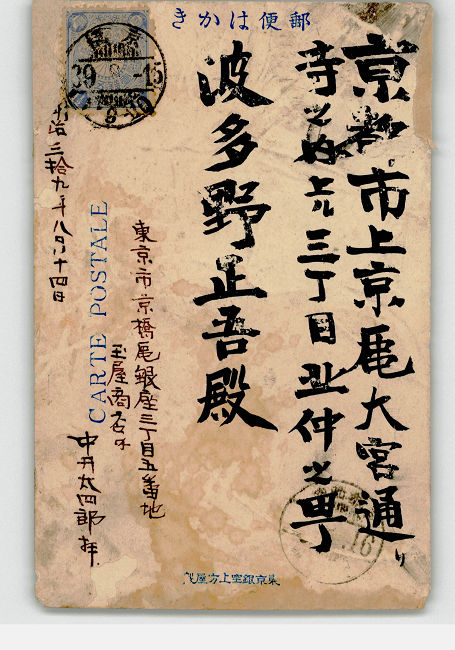 郵便はかき
京都市上京區大宮通り
寺之内上ル三丁目北仲之町
波多野正吾殿
東京市京橋區銀座三丁目五番地
玉屋商店内
中井太四郎拝
CARTE POSTALE
明治三拾九年八月十四日
39
-15
16
東京銀座上方屋製